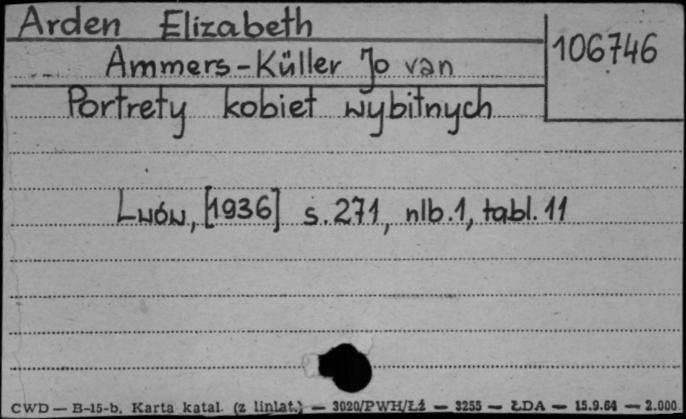 Arden Elizabeth
106746
Ammers-Küller Jo van
Portrety kobiet wybitnych
Lwów, [1936] s. 271, nlb. 1, tabl. 11
CWD — B-15-b. Karta katal. (z liniat.) — 3020/PWH/Łź — 3255 — ŁDA — 15.9.64 — 2.000